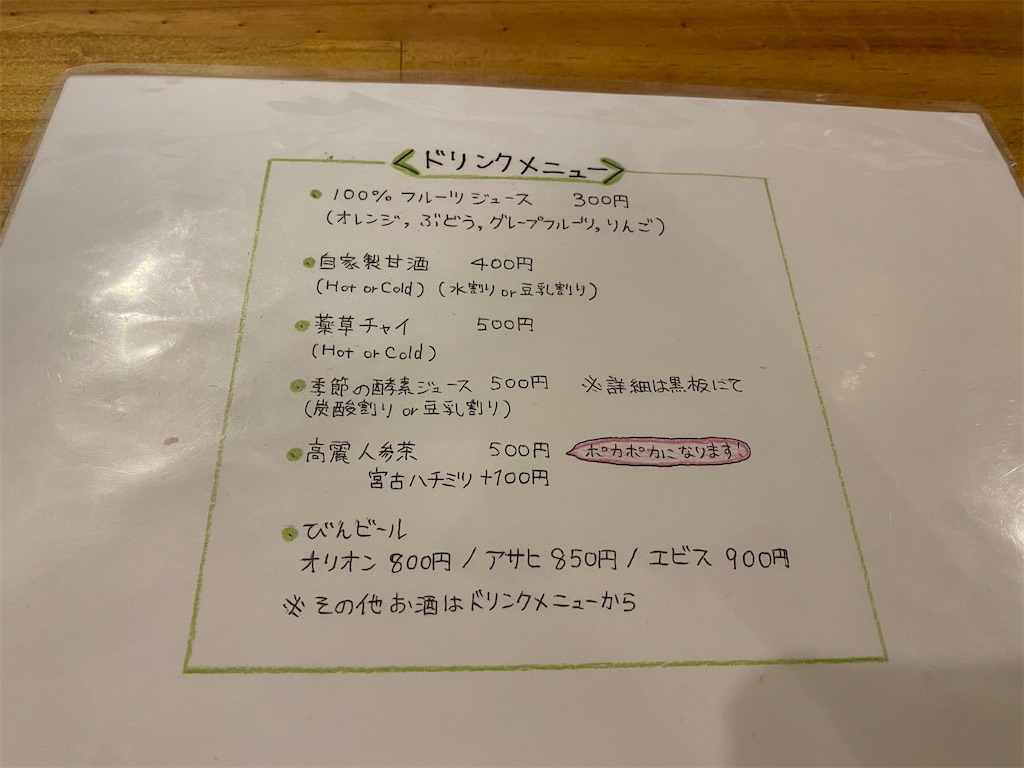 <ドリンクメニュー>
• 100% フルーツジュース 300円
(オレンジ, ぶどう, グレープフルーツ, りんご)
• 自家製甘酒 400円
(Hot or Cold) (水割り or 豆乳割り)
• 薬草チャイ 500円
(Hot or Cold)
• 季節の酵素ジュース 500円 ※詳細は黒板にて
(炭酸割り or 豆乳割り)
• 高麗人参茶 500円 ポカポカになります!
宮古ハチミツ +100円
• びんビール
オリオン 800円 / アサヒ 850円 / エビス 900円
※その他お酒はドリンクメニューから